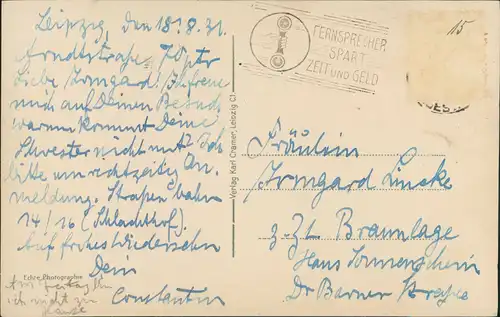 Leipzig, den 18.8.31.
Arndtstraße 70 ptr
Liebe Irmgard! Ich freue
mich auf Deinen Besuch
warum kommt Deine
Schwester nicht mit? Ich
bitte um rechtzeitig An
meldung. Straßenbahn
14/16 (Schlachthof).
Auf frohes Wiedersehn
Dein
Constantin
Echte Photographie
Am Freitag bin
ich nicht zu
Hause
Verlag Karl Cramer, Leipzig C1.
FERNSPRECHER
SPART
ZEIT UND GELD
15
Fräulein
Irmgard Lincke
z. Zt. Braunlage
Haus Sonnenschein
Dr Barner Straße